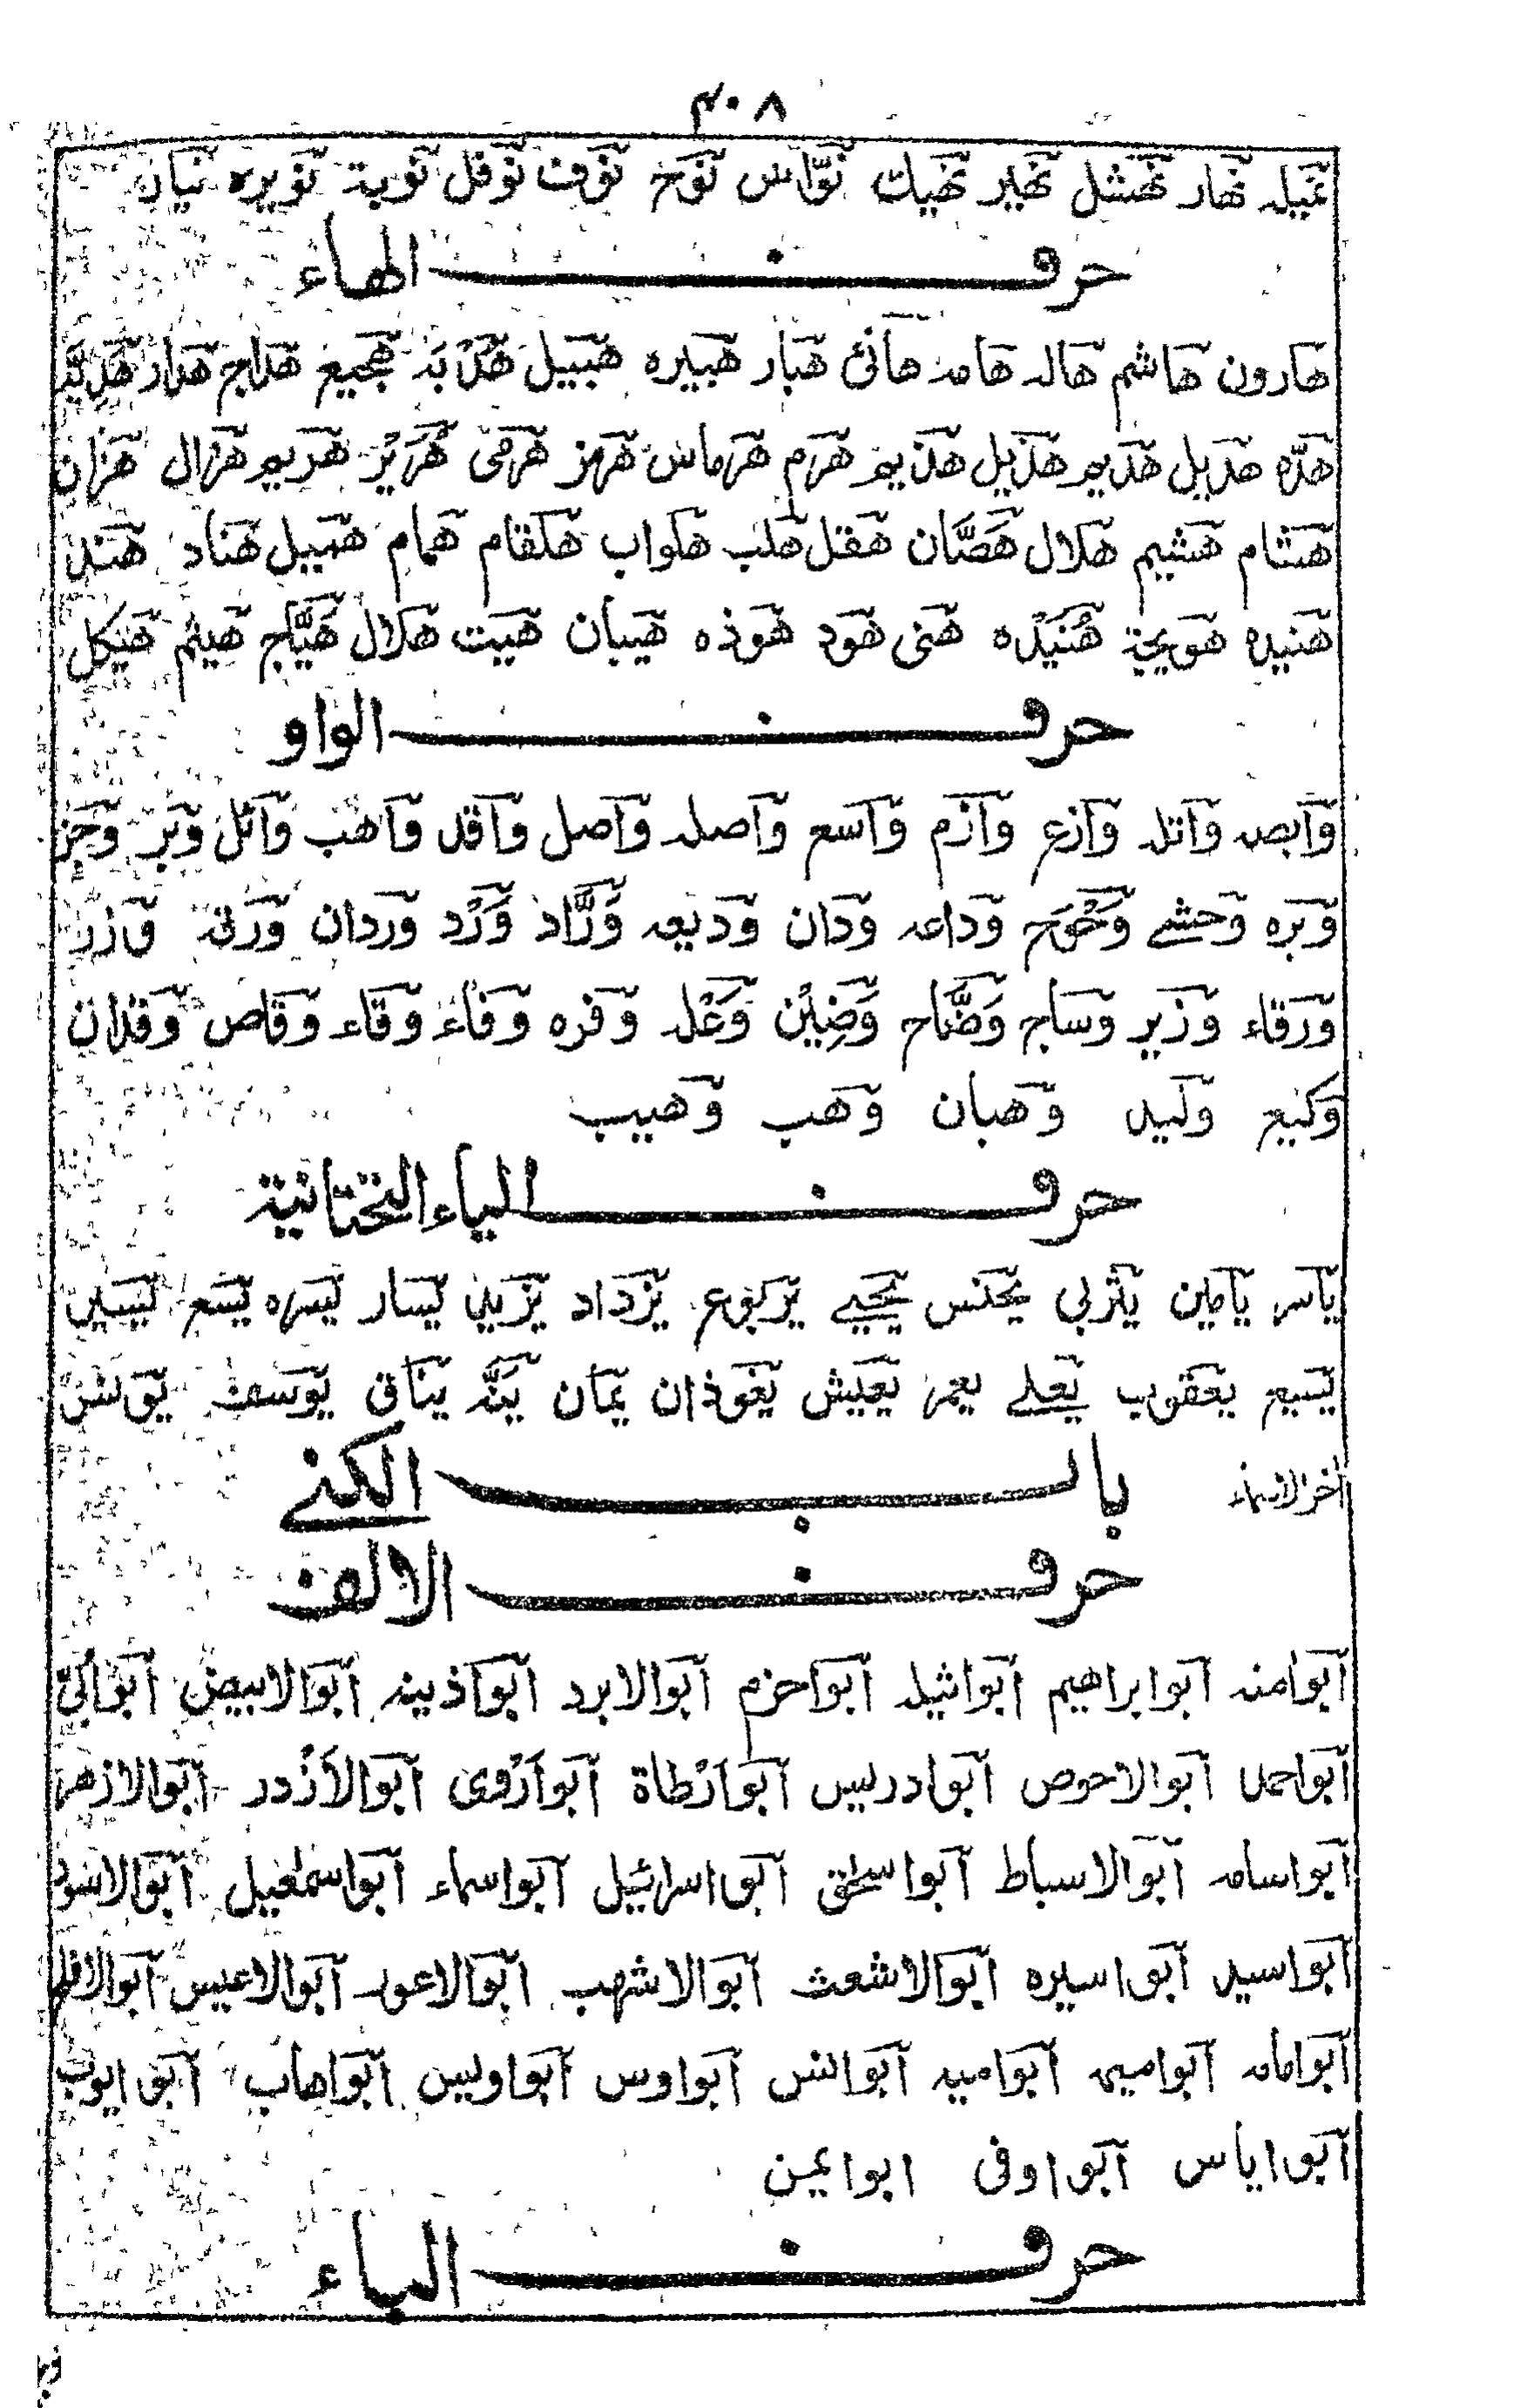 ٣٠٨
نميله نهار نهشل نهير نهيك نوّاس نوح نوف نوفل نوبة نويره نيار
حرف الهاء
هارون هاشم هاله هامه هانئ هبار هبيره هبيل هجيع هداج هدار
هدّه هديل هديم هذيل هذيم هرم هرماس هرمز هرمى هرير هريم هزال هزان
هشام هشيم هلال هصّان هقل هلب هلواب هلقام همام هميل هناد هند
هنيده هويجة هُنَيْدَه هنى هود هوذه هيبان هيت هلال هيّاج هيثم هيكل
حرف الواو
وابصه واثله وازع وازم واسع واصله واصل واقد واهب وائل وبر وجز
وبره وحشے وَحْوَح وداعه ودان وديعه ورَّاد وَرْد وردان ورقة وازر
ورقاء وزير وساج وضَّاح وَضِيْن وَعْله وفره وفاء وقاء وقاص وقدان
وكيع وليد وهبان وهب وهيب
حرف الياء التحتانية
ياسر يامين يثربي يحنس يحيے يربوع يزداد يزيد يسار يسره يسع يسير
يسيع يعقوب يعلے يعمر يعيش يغوذان يمان ينّه يناق يوسف يونس
اخر الاسماء
باب الكنے
حرف الالف
ابوامنه ابوابراهيم ابواثيله ابواحزم ابوالابرد ابواذينه ابوالابيض ابوأبيّ
ابواحمد ابوالاحوص ابوادريس ابوارْطاة ابوارْوى ابوالأزْدر ابوالازهر
ابواسامه ابوالاسباط ابواسحٰق ابواسرائيل ابواسماء ابواسمٰعيل ابوالاسود
ابواسيد ابواسيره ابوالاشعث ابوالاشهب ابوالاعور ابوالاعيس ابوالافلح
ابوامامه ابواميمه ابواميه ابوانس ابواوس ابواويس ابواهاب ابوايوب
ابواياس ابواوفى ابوايمن
حرف الباء